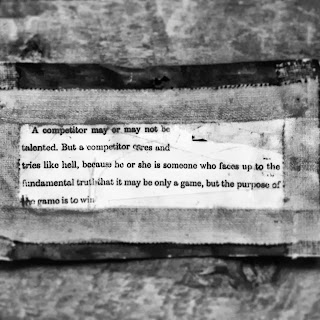 A competitor may or may not be
talented. But a competitor cares and
tries like hell, because he or she is someone who faces up to the
fundamental truth that it may be only a game, but the purpose of
the game is to win